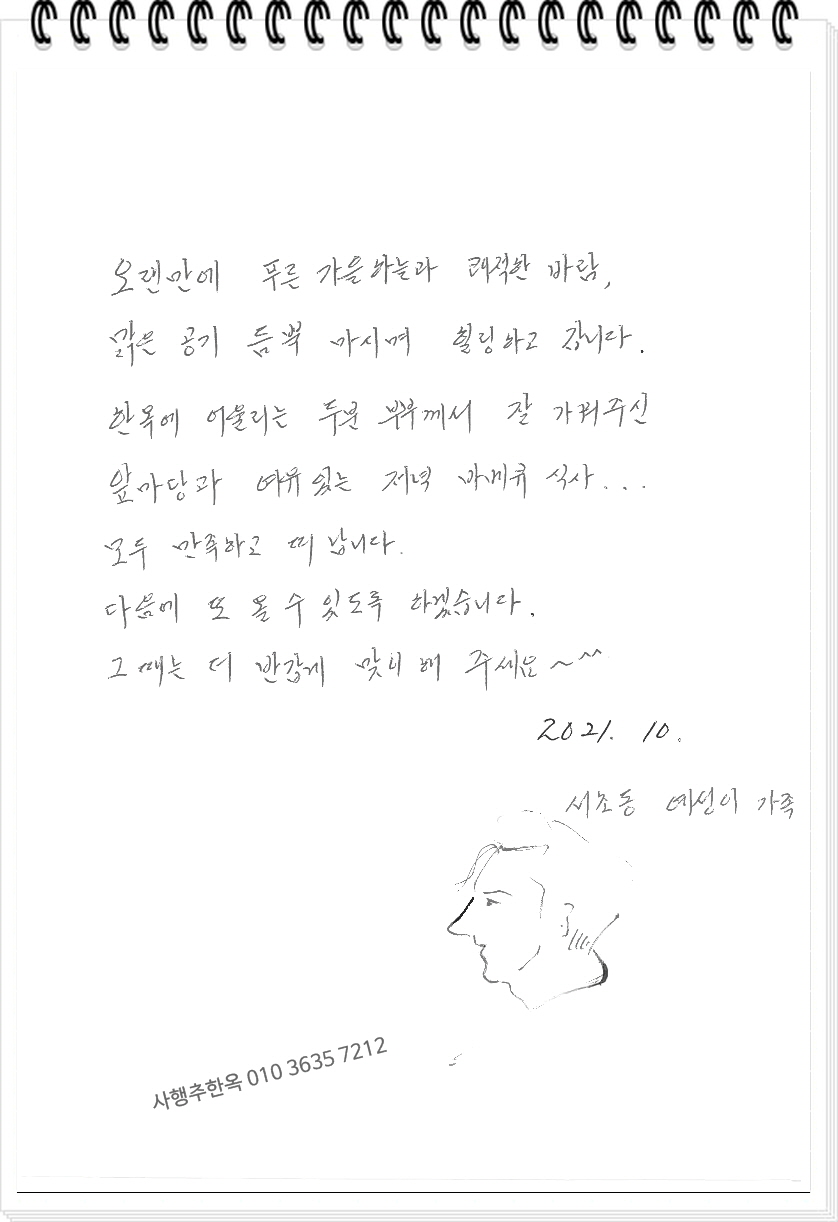 오랜만에 푸른 가을하늘과 쾌적한 바람,
맑은 공기 듬뿍 마시며 힐링하고 갑니다.
한옥에 어울리는 두분 부부께서 잘 가꿔주신
앞마당과 여유있는 저녁 바베큐 식사...
모두 만족하고 떠납니다.
다음에 또 올 수 있도록 하겠습니다.
그때는 더 반갑게 맞이해 주세요~^^
2021. 10.
서초동 예선이 가족
사행추한옥 010 3635 7212